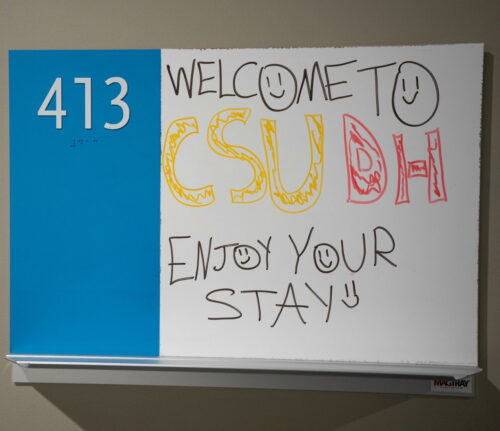 413
WELCOME TO
CSUDH
ENJOY YOUR
STAY
MAGTRAY